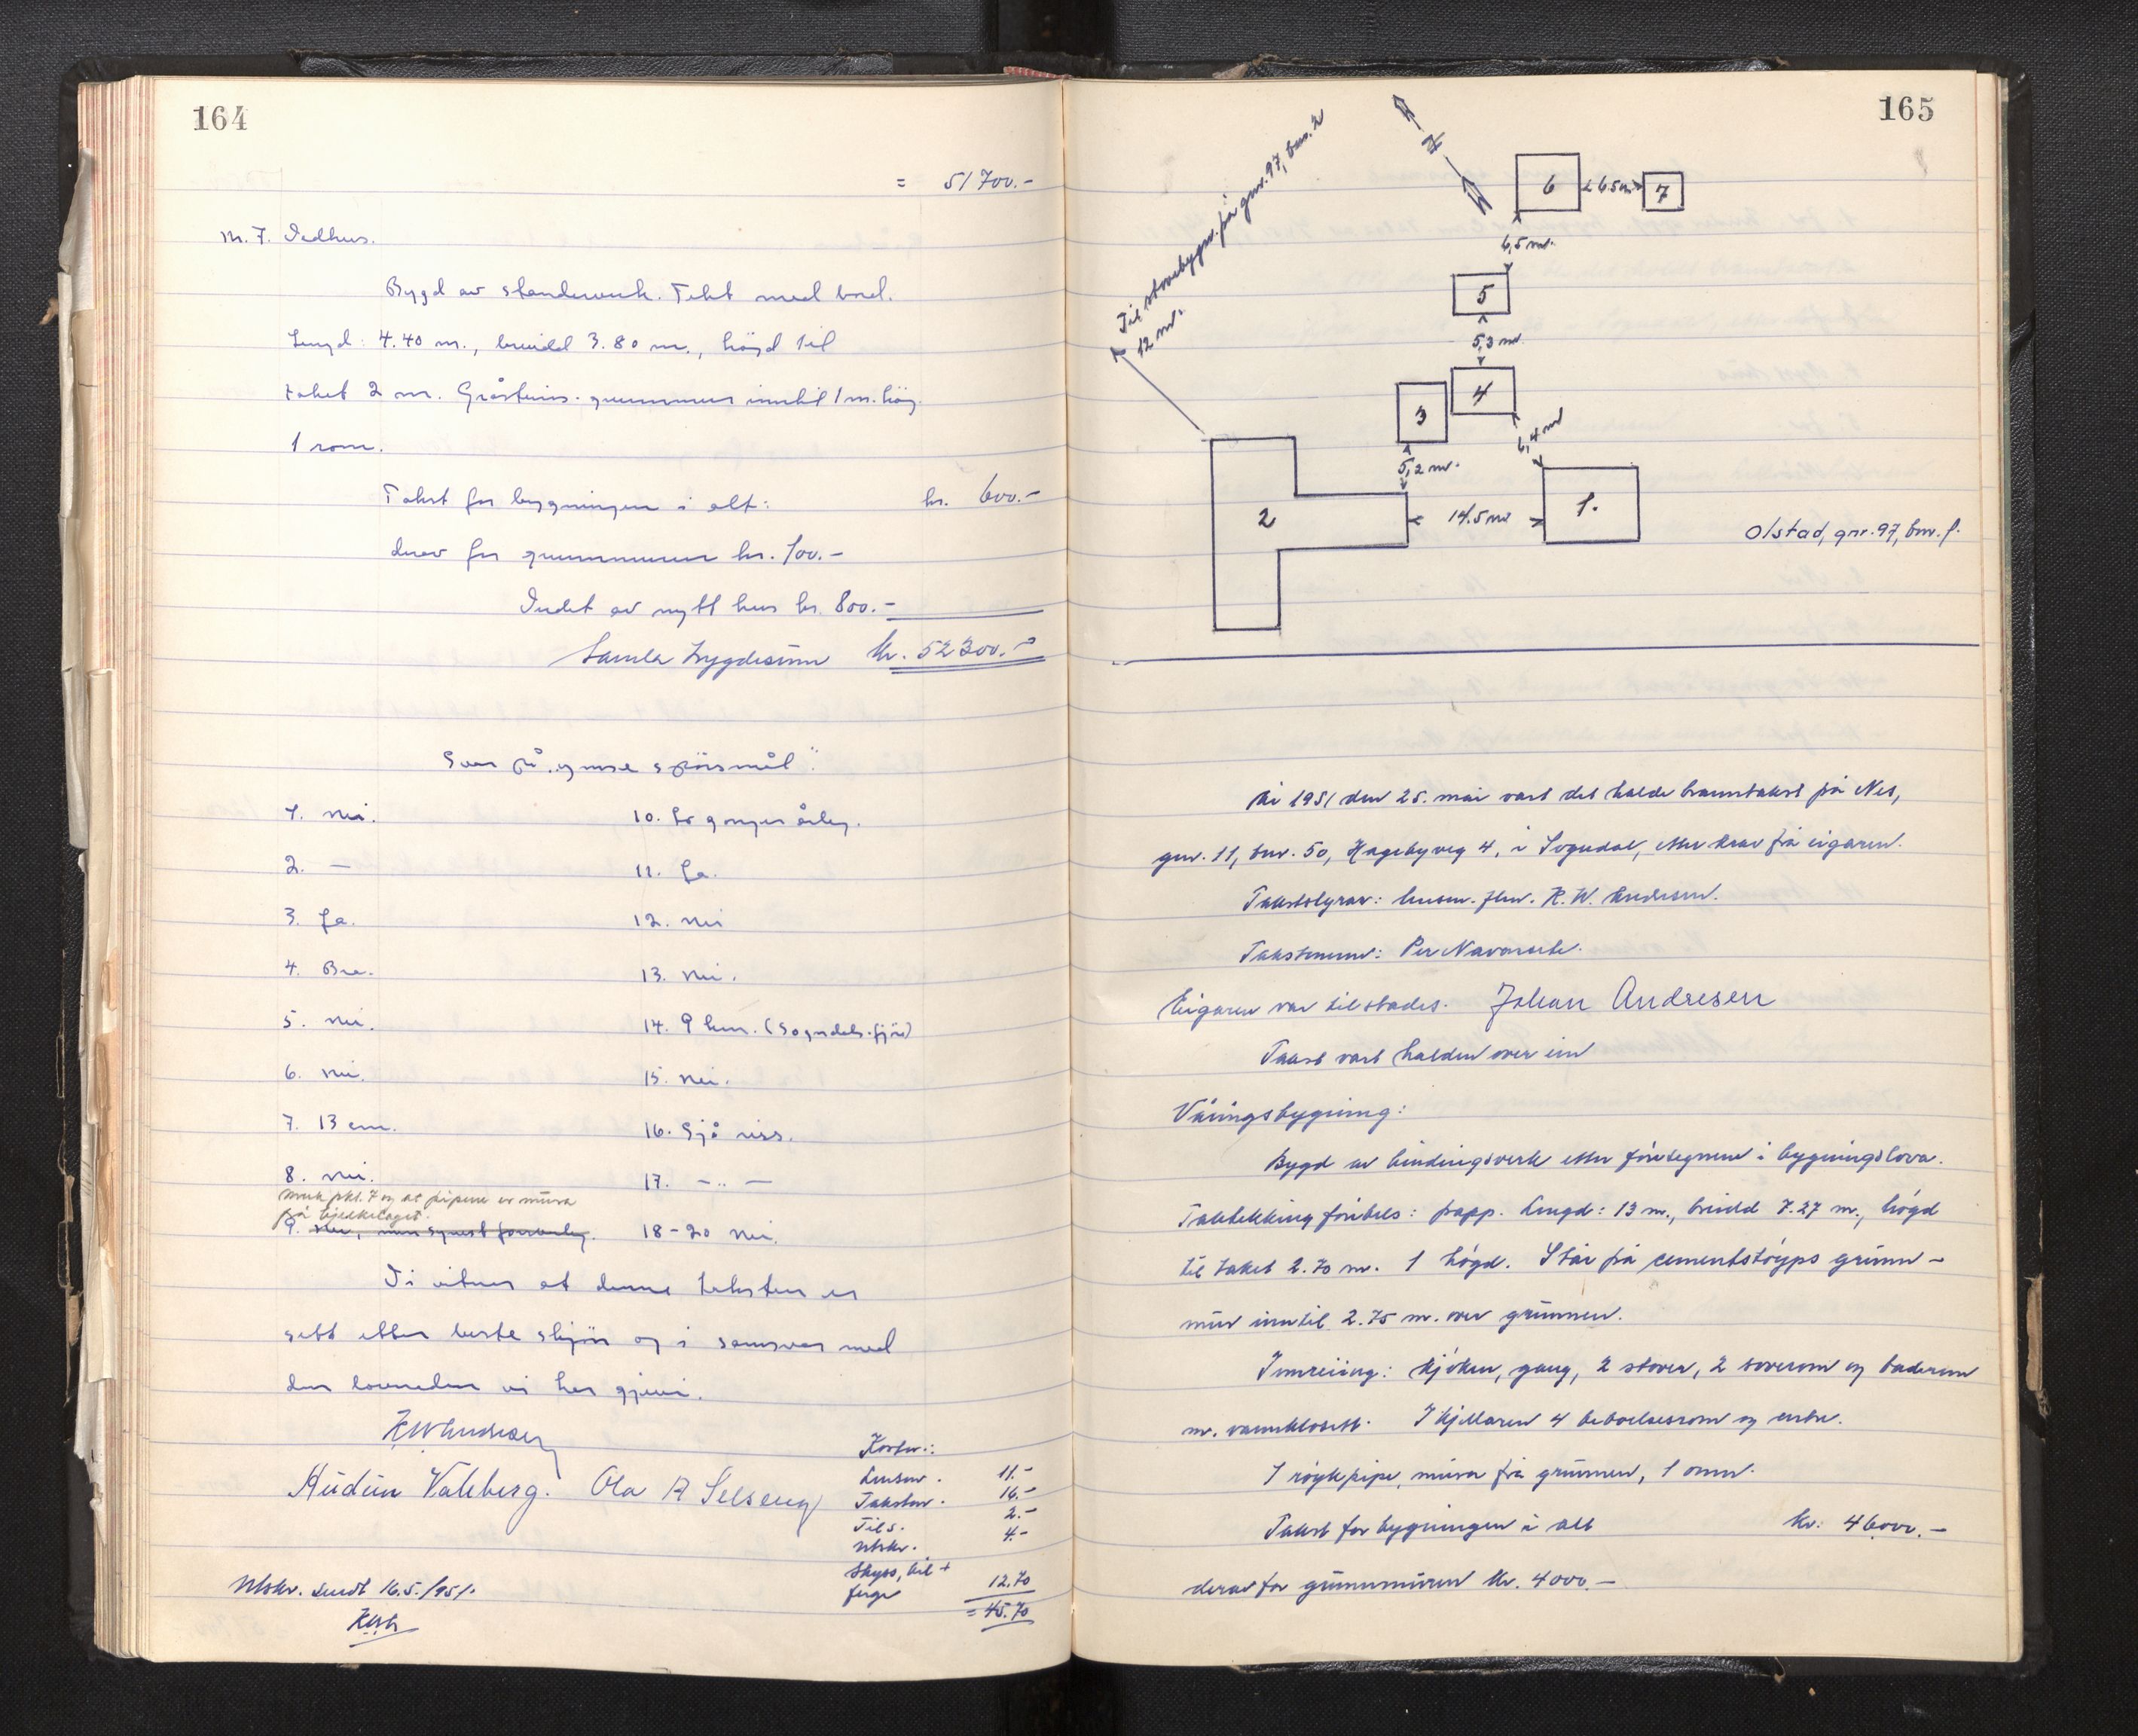 164
= 51700.-
m. 7. Vedhus.
Bygd av standerverk. Tekt med bord.
Lengd: 4.40 m., breidd 3.80 m., høgd til
taket 2 m. Gråsteins-grunnmur inntil 1 m. høg.
1 rom.
Takst for bygningen i alt: kr. 600.-
derav for grunnmuren kr. 100.-
Verdet av nytt hus kr. 800.-
Samla trygdesum kr. 52300.-
Svar på "ymse spørsmål":
1. Nei.
2. —
3. Ja.
4. Bra.
5. Nei.
6. Nei.
7. 13 cm.
8. Nei.
merk pkt. 7 og at pipene er mura
på bjelkelaget.
9. Nei, men synest forsvarleg.
10. To gonger årleg.
11. Ja.
12. Nei
13. Nei.
14. 9 km. (Sogndalsfjøra)
15. Nei.
16. Sjå riss.
17. -..-
18-20 Nei.
Vi vitnar at denne taksten er
sett etter beste skjøn og i samsvar med
den lovnaden vi har gjeve.
KWAndresen
Audun Vatleberg. Ola A Selseng
Kostn.:
Lensm. 11.-
Takstm. 16.-
Tils. 2.-
Utskr. 4.-
Skyss, bil +
ferge 12.70
= 45.70
Utskr. sendt 16.5./951.
KWA
165
Til stovebygn. på gnr. 97, bnr. 2
12 m.
N
6
26.5m
7
6,5 m.
5
5,3 m
4
3
6,4 m
5,2 m.
2
14.5 m
1.
Olstad, gnr. 97, bnr. 1.
År 1951 den 25. mai vart det halde branntakst på Nes,
gnr. 11, bnr. 50, Hagebyveg 4, i Sogndal, etter krav frå eigaren.
Takststyrar: lensm. flm. K. W. Andresen.
Takstmenn: Per Navarsete.
Eigaren var tilstades. Johan Andresen
Takst vart halden over ein
Våningsbygning:
Bygd av bindingsverk etter føresegnene i bygningslova.
Taktekking førebels: papp. Lengd: 13 m., breidd 7.27 m., høgd
til taket 2.70 m. 1 høgd. Står på cementstøyps grunn-
mur inntil 2.75 m. over grunnen.
Innreiing: kjøken, gang, 2 stover, 2 soverom og baderom
m. vannklosett. I kjellaren 4 beboelsesrom og entre.
1 røykpipe, mura frå grunnen, 1 omn.
Takst for bygningen i alt kr: 46000.-
derav for grunnmuren kr. 4000.-